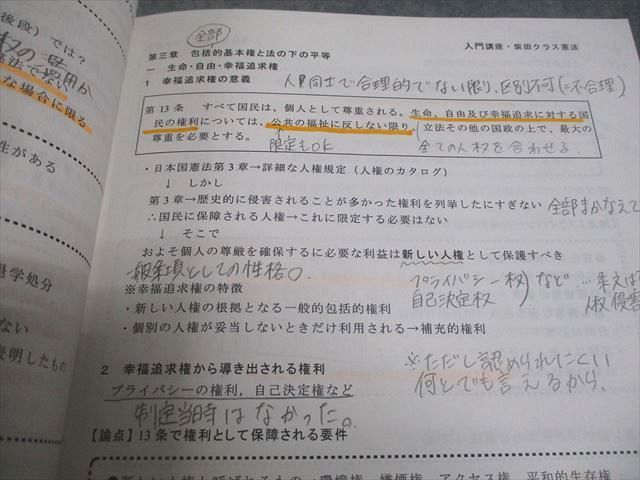 後段）では？
な場合に限る
性がある
退学処分
ない
表明したもの
全部
第三章　包括的基本権と法の下の平等
入門講座・柴田クラス憲法
一　生命・自由・幸福追求権
1　幸福追求権の意義
人間同士で合理的でない限り、区別不可(=不合理)
第13条　すべて国民は、個人として尊重される。生命、自由及び幸福追求に対する国
民の権利については、公共の福祉に反しない限り、立法その他の国政の上で、最大の
尊重を必要とする。
限定もOK
全ての人権を合わせる
・日本国憲法第3章→詳細な人権規定（人権のカタログ）
↓　しかし
第3章→歴史的に侵害されることが多かった権利を列挙したにすぎない
全部まかなえて
∴国民に保障される人権→これに限定する必要はない
↓　そこで
およそ個人の尊厳を確保するに必要な利益は新しい人権として保護すべき
一般条項としての性格。
プライバシー権
自己決定権
など…
※幸福追求権の特徴
・新しい人権の根拠となる一般的包括的権利
・個別の人権が妥当しないときだけ利用される→補充的権利
※ただし認められにくい
何とでも言えるから。
2　幸福追求権から導き出される権利
プライバシーの権利，自己決定権など
制定当時はなかった。
【論点】13条で権利として保障される要件